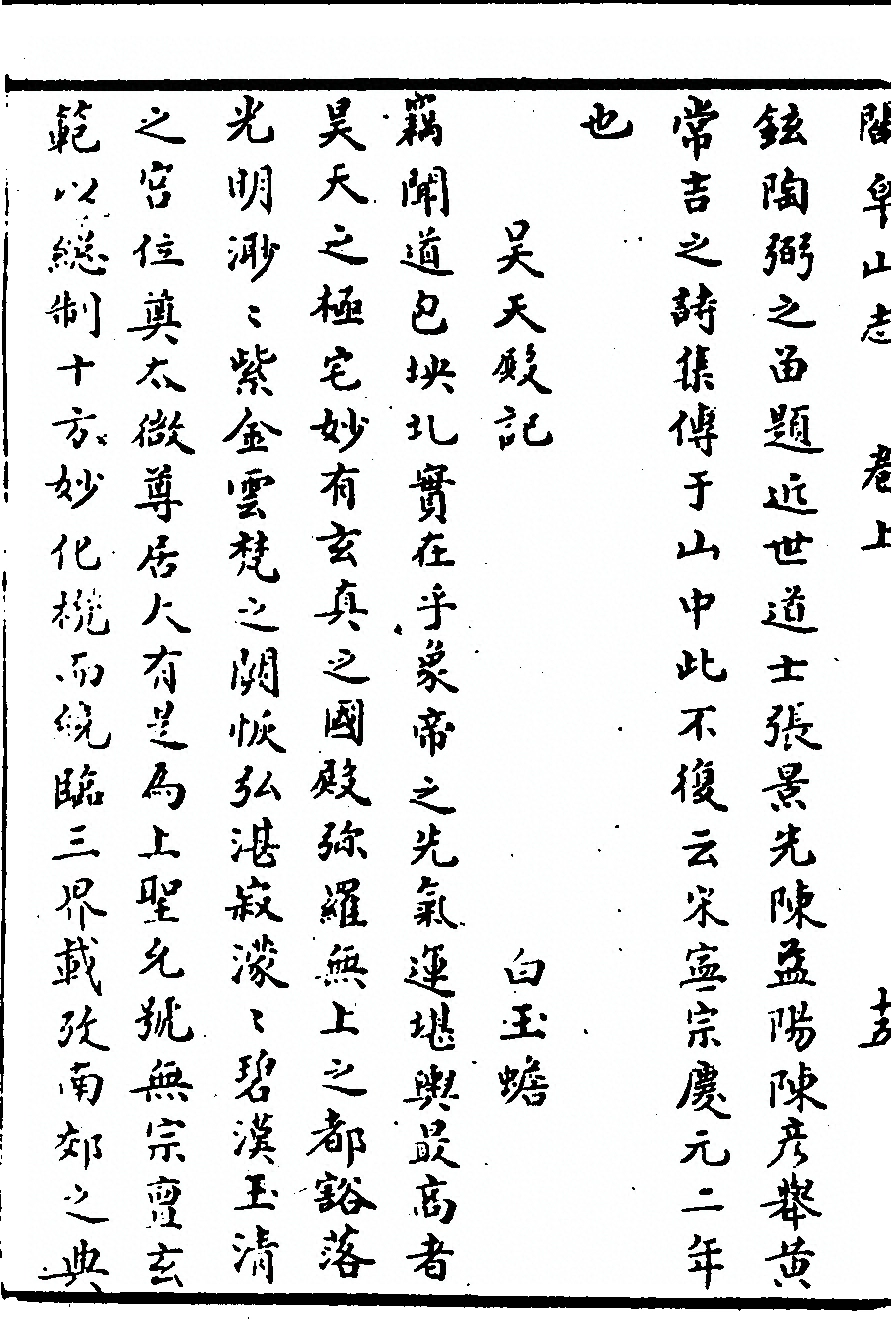 閤皁山志　卷上　十五
鉉陶弼之留題近世道士張景先陳益陽陳彥舉黄
常吉之詩集傅于山中此不復云宋寧宗慶元二年
也
昊天殿記　白玉蟾
竊聞道包坱圠實在乎象帝之先氣運堪輿最高者
昊天之極宅妙有玄真之國殿弥羅無上之都豁落
光明渺〻紫金雲梵之闕恢弘湛寂濛〻碧漢玉清
之宮位奠太微尊居大有是為上聖允號無宗亶玄
範以總制十方妙化機而統臨三界載攷南郊之典